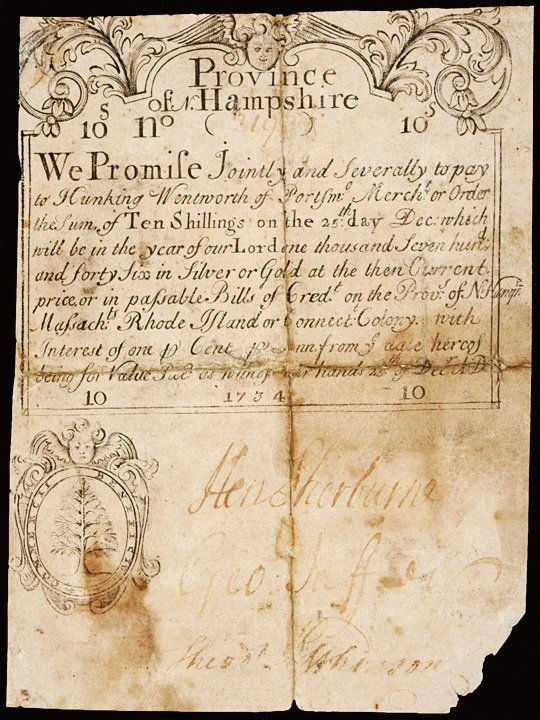 Province
of N. Hampshire
10 S No ( 219 ) 10 S
We Promise Jointly and Severally to pay
to Hunking Wentworth of Portsmo. Mercht. or Order
the Sum of Ten Shillings on the 25th. day Decr. which
will be in the year of our Lord one thousand Seven hund.
and forty Six in Silver or Gold at the then Current
price, or in passable Bills of Credt. on the Prove. of N. Hampr.
Massachts. Rhode Island or Connectt. Colony. with
Interest of one p Cent p Ann from ye date hereof
being for Value as hands 25th of Decr. A:D
10 1734 10
COMMERCII
Hen Sherburne
Geo: Jaffrey
Theodr. Atkinson